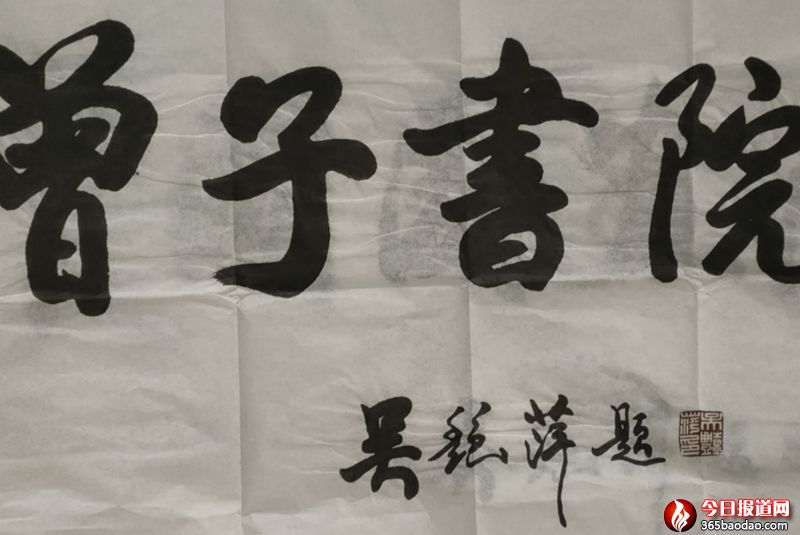 曾子书院
吴懿萍题
今日报道网
365baodao.com